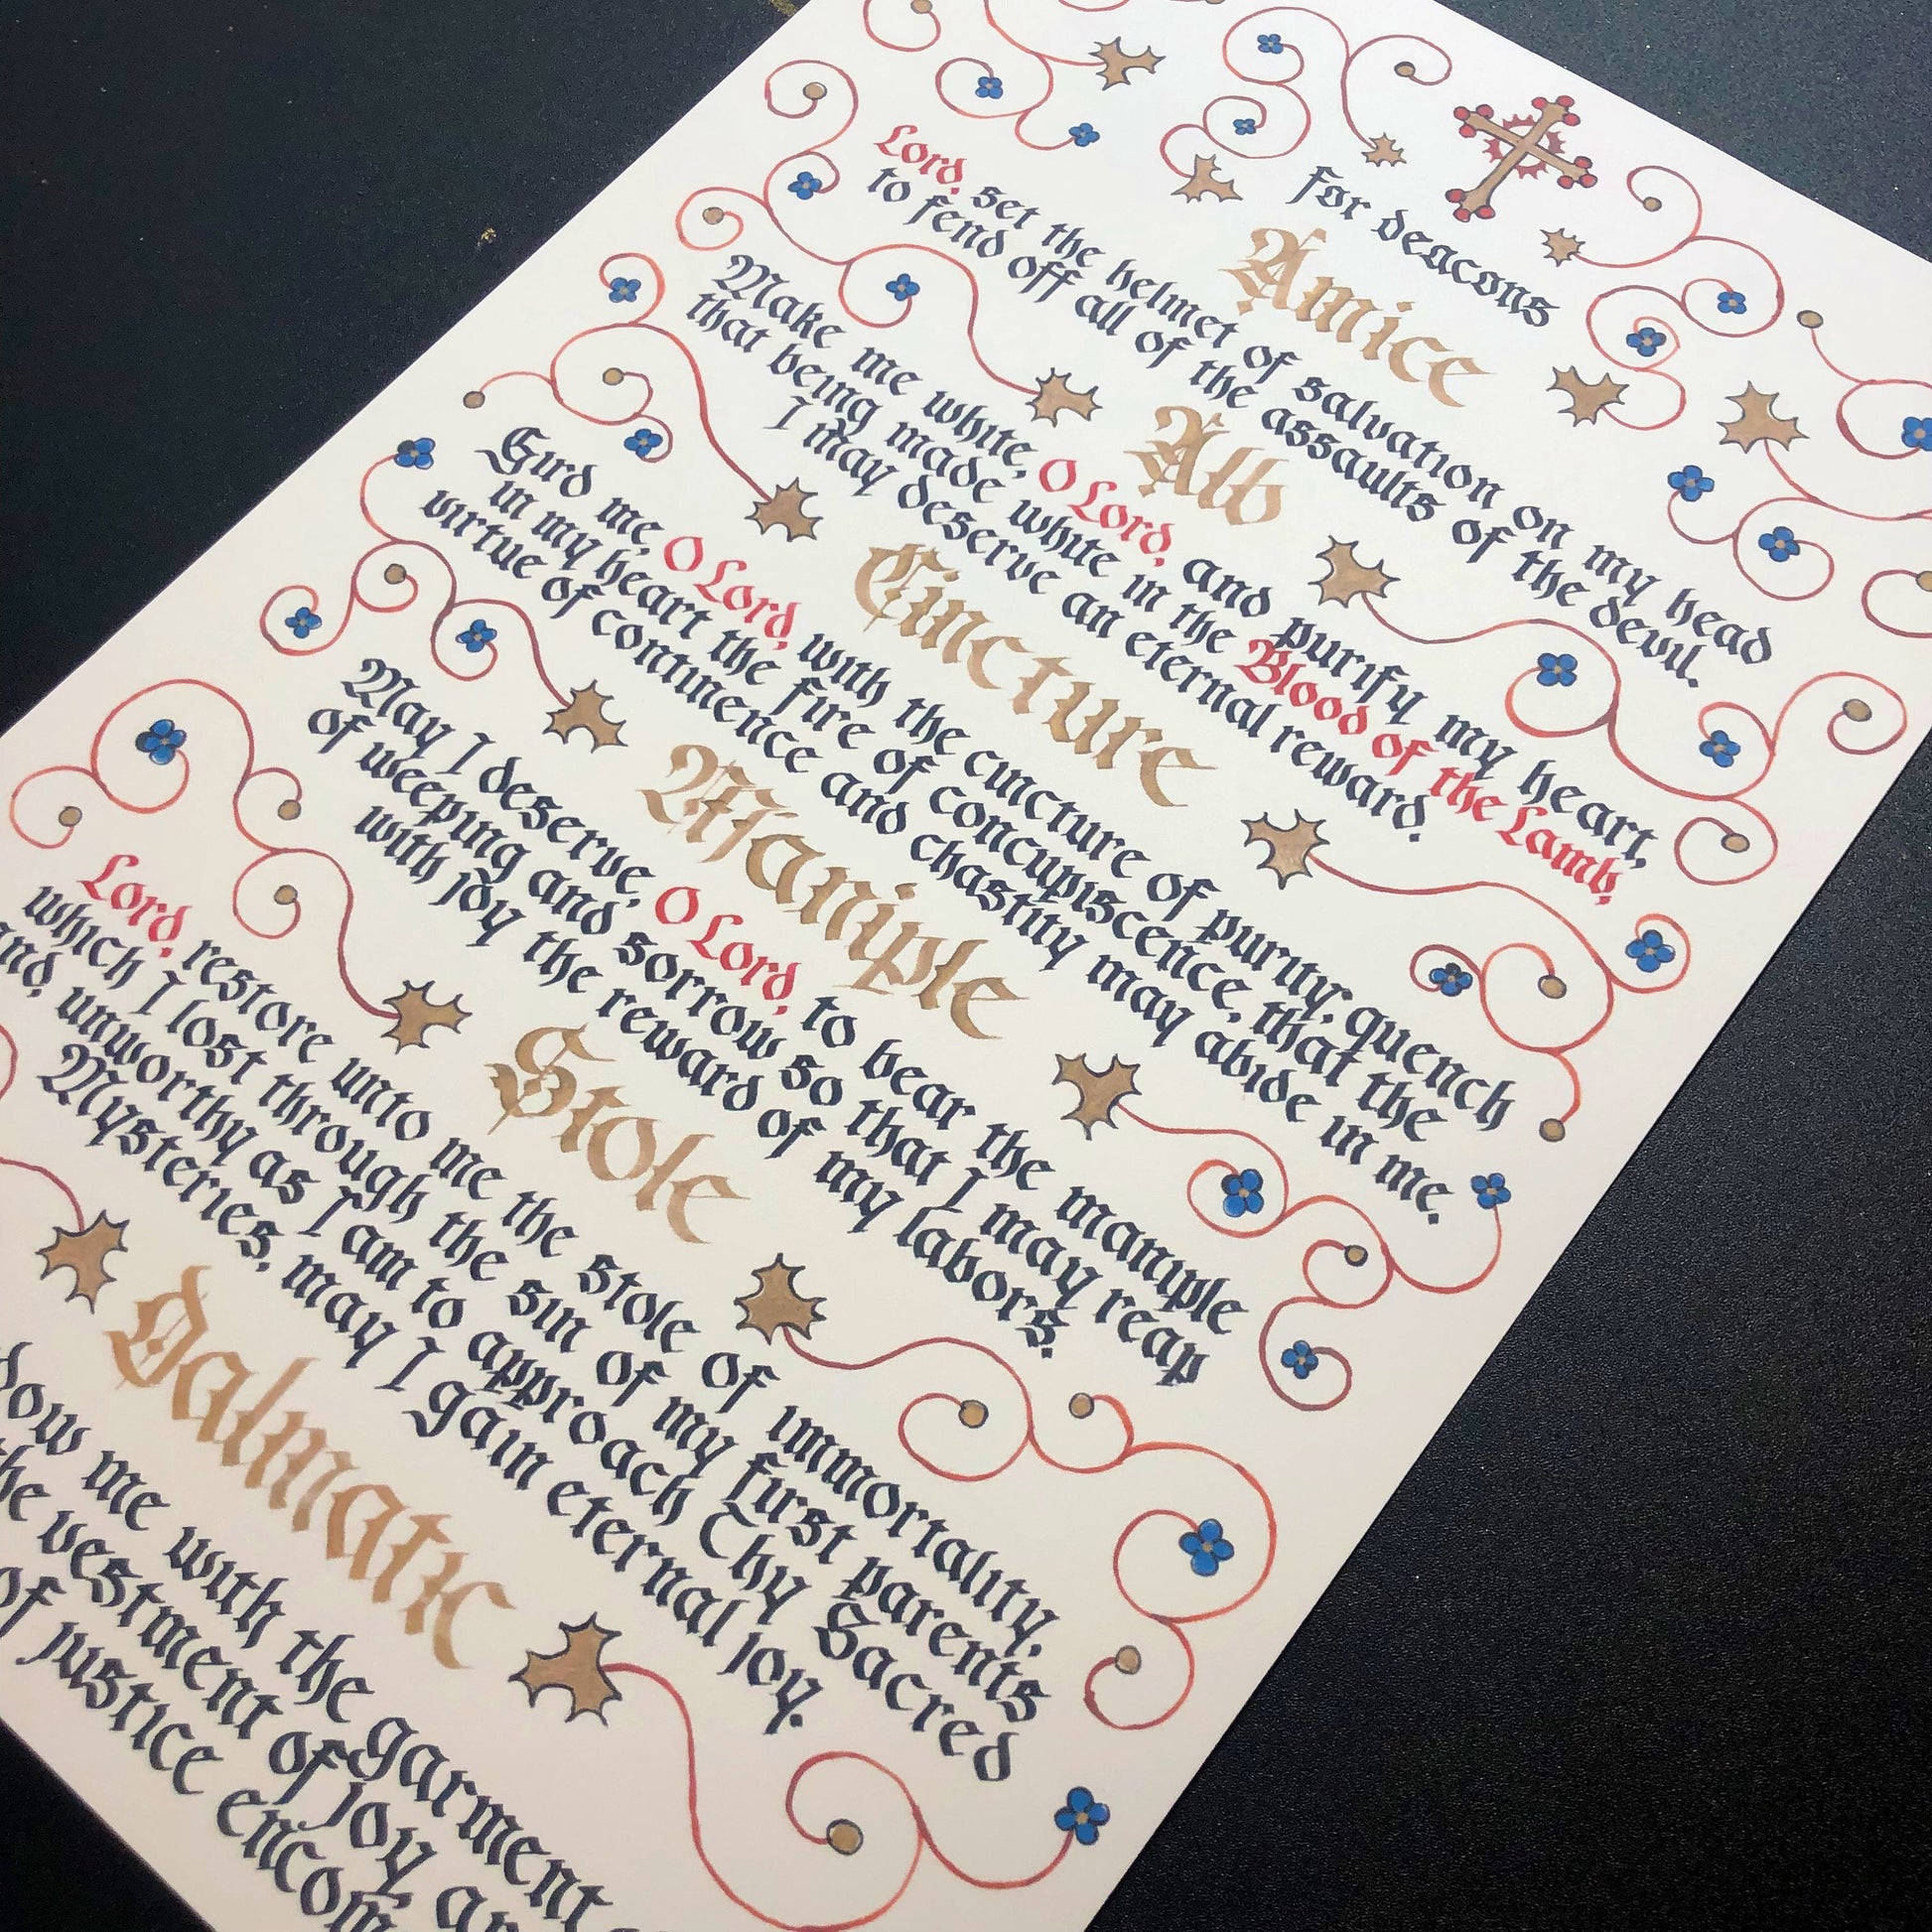 for deacons
Amice
Lord, set the helmet of salvation on my head
to fend off all of the assaults of the devil.
Alb
Make me white, O Lord, and purify my heart,
that being made white in the Blood of the Lamb,
I may deserve an eternal reward.
Cincture
Gird me, O Lord, with the cincture of purity, quench
in my heart the fire of concupiscence, that the
virtue of continence and chastity may abide in me.
Maniple
May I deserve, O Lord, to bear the maniple
of weeping and sorrow so that I may reap
with joy the reward of my labors.
Stole
Lord, restore unto me the stole of immortality,
which I lost through the sin of my first parents
and, unworthy as I am to approach Thy Sacred
Mysteries, may I gain eternal joy.
Dalmatic
me with the garment
the vestment of joy
of justice